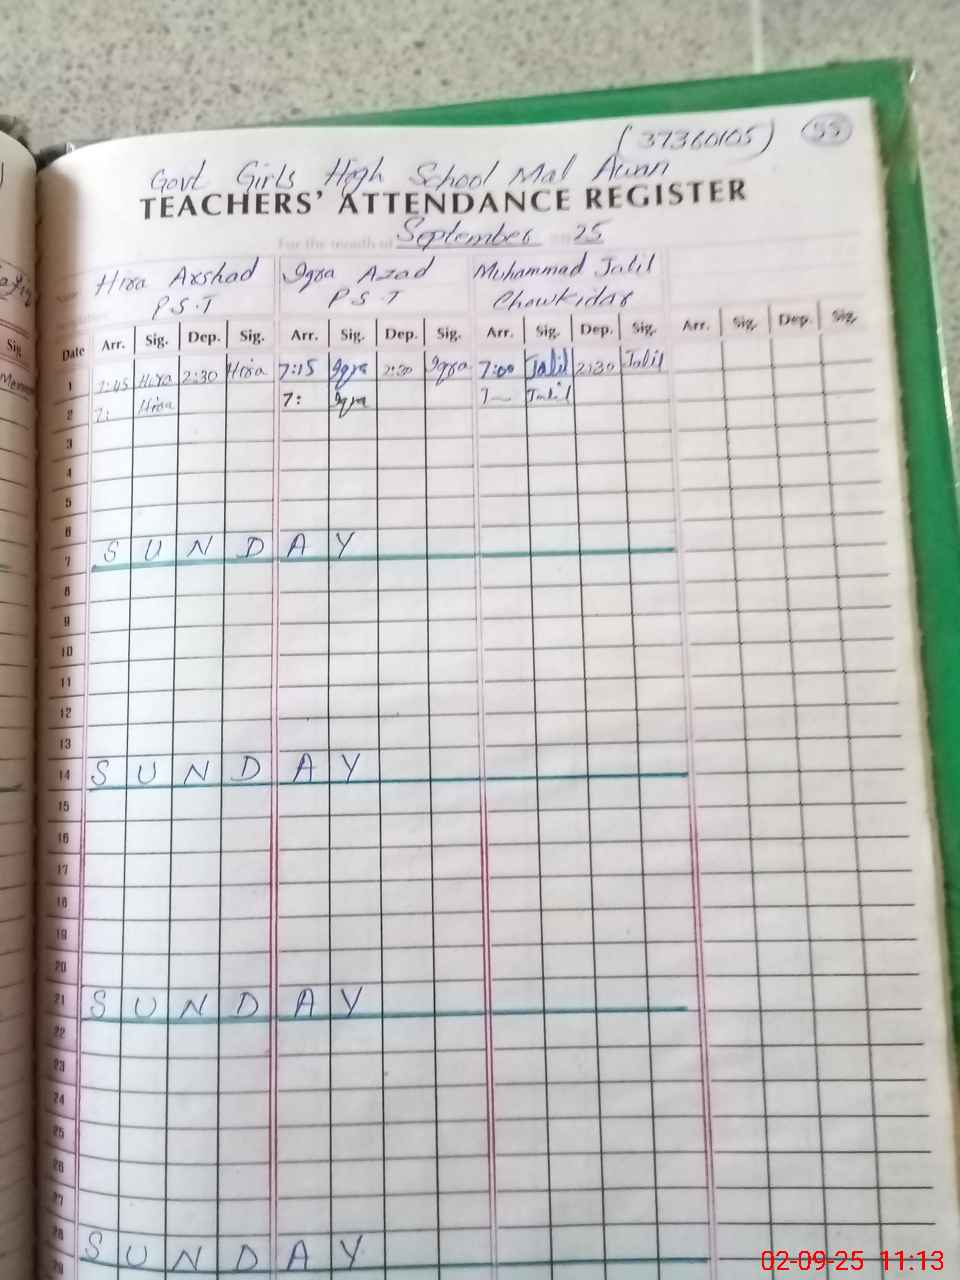 (37360105) 55
Govt Girls High School Mal Awan
TEACHERS' ATTENDANCE REGISTER
For the month of September 25
Hira Arshad Iqra Azad Muhammad Jalil
P.S.T P.S.T Chowkidar
Date Arr. Sig. Dep. Sig. Arr. Sig. Dep. Sig. Arr. Sig. Dep. Sig. Arr. Sig. Dep. Sig.
1 7:45 Hira 2:30 Hira 7:15 Iqra 2:30 Iqra 7:00 Jalil 2:30 Jalil
2 7: Hira 7: Iqra 7 Jalil
3
4
5
6
7 SUNDAY
8
9
10
11
12
13
14 SUNDAY
15
16
17
18
19
20
21 SUNDAY
22
23
24
25
26
27
28 SUNDAY
29
Sig
02-09-25 11:13